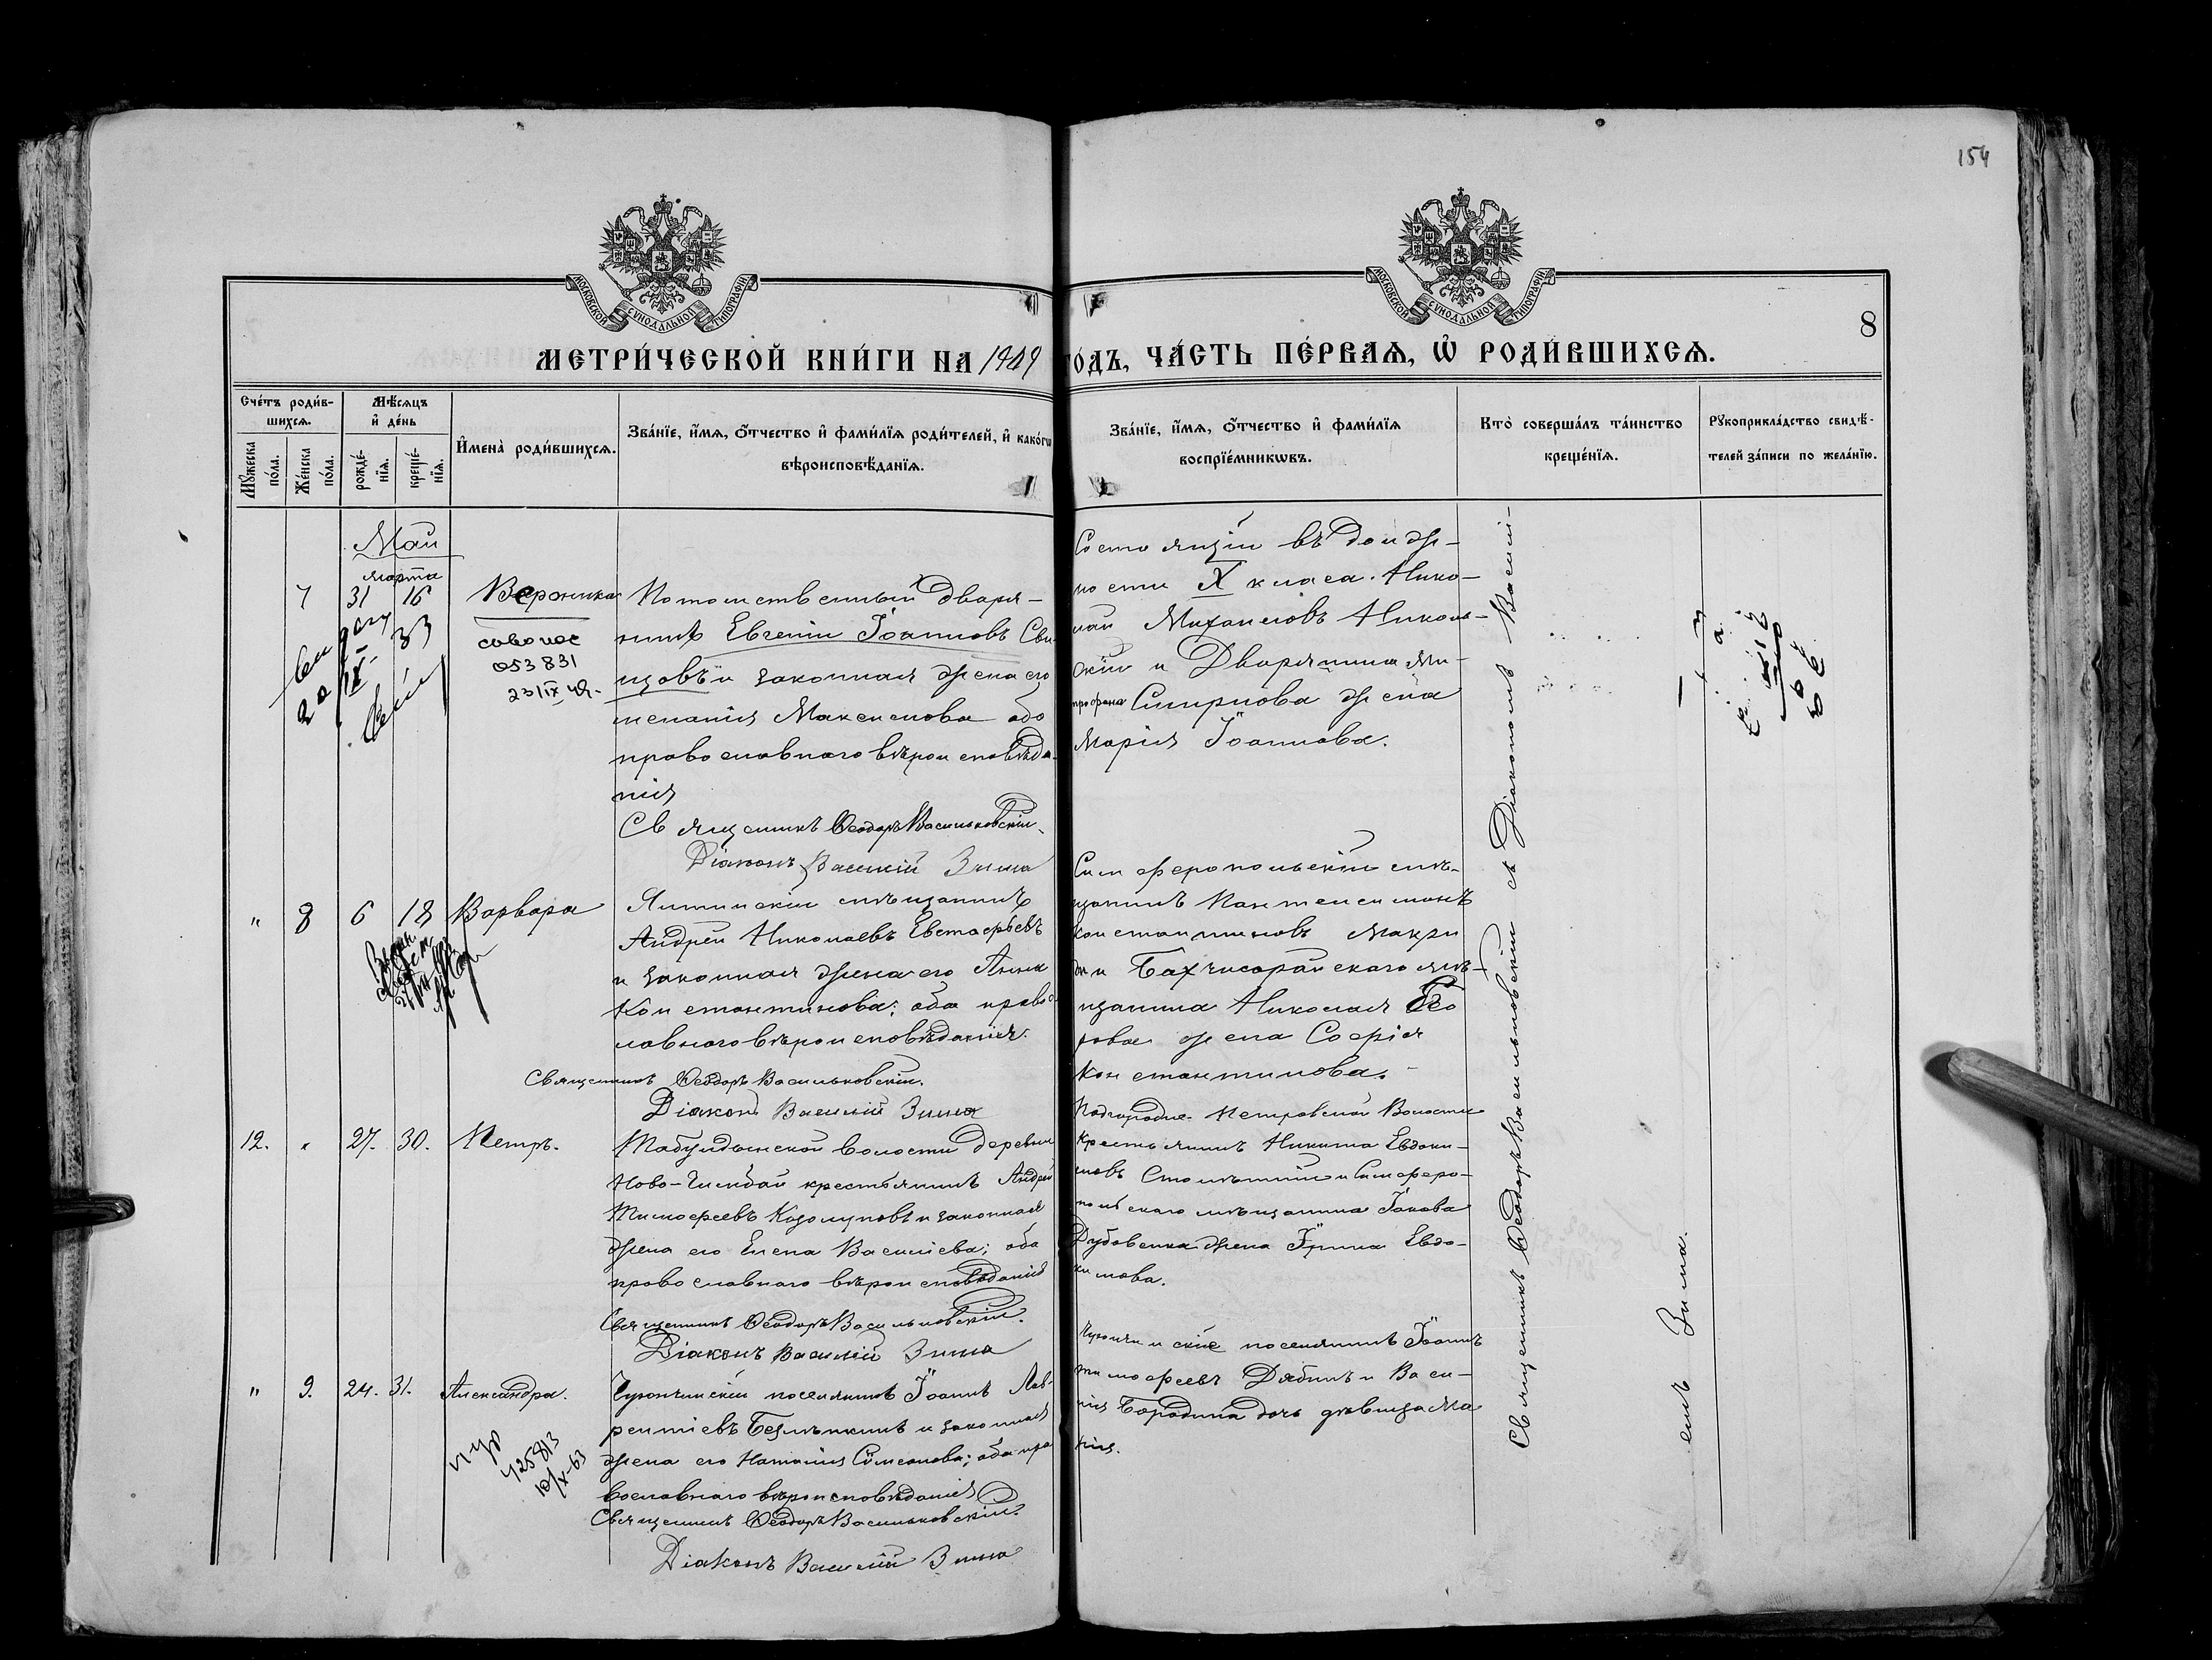 154
8
МОСКОВСКОЙ СУНОДАЛЬНОЙ ТИПОГРАФІИ
МОСКОВСКОЙ СУНОДАЛЬНОЙ ТИПОГРАФІИ
МЕТРИ́ЧЕСКОЙ КНИ́ГИ НА 1909 ГО́ДЪ, ЧА́СТЬ ПЕ́РВАѦ, Ѡ РОДИ́ВШИХСѦ.
Сче́тъ роди́в-
шихсѧ.
Мꙋжеска по́ла.
Же́нска по́ла.
Мѣ́сѧцъ
и҆ де́нь
рожде́-
нїѧ.
креще́-
нїѧ.
И҆мена̀ роди́вшихсѧ.
Зва́нїе, и҆́мѧ, ѻ҆́тчество и҆ фами́лїѧ роди́телей, и҆ како́гѡ
вѣроисповѣ́данїѧ.
Зва́нїе, и҆́мѧ, ѻ҆́тчество и҆ фами́лїѧ
воспрїе́мникѡвъ.
Кто̀ соверша́лъ та́инство
креще́нїѧ.
Рꙋкоприкла́дство свидѣ́-
телей за́писи по жела́нїю.
Май
марта
7 31 16 Вероника
Потомственный дворя-
нинъ Евгеній Іоанновъ Сви-
щовъ и законная жена его
Максимова обо
православнаго вѣроисповѣда-
нія
Священникъ Ѳеодоръ Васильковскій
Діаконъ Василій Зима
053831
23/IX 49.
Состоящій въ долж-
ности X класа Нико-
лай Михаиловъ Николь-
скій и Дворянина Ми-
трофана Смирнова жена
Марія Іоаннова.
" 8 6 18 Варвара
Ялтинскій мѣщанинъ
Андрей Николаевъ Евстафьевъ
и законная жена его Анна
Константинова; оба правос-
лавнаго вѣроисповѣданія.
Священникъ Ѳеодоръ Васильковскій.
Діаконъ Василій Зима
Симферопольскій мѣ-
щанинъ Пантелеимонъ
Константиновъ Макри
ди и Бахчисарайскаго мѣ-
щанина Николая
жена Софія
Константинова.
12. " 27. 30. Петръ.
Табулдынской волости деревни
Ново- крестьянинъ Андрей
Тимофеевъ Козолуповъ и законная
жена его Елена Василіева; оба
православнаго вѣроисповѣданія
Священникъ Ѳеодоръ Васильковскій.
Діаконъ Василій Зима
Подгородне-Петровской Волости
Крестьянинъ Никита Евдоки-
мовъ и Симферо-
польскаго мѣщанина Іакова
Дубовенка жена Ірина Евдо-
кимова.
" 9. 24. 31. Александра.
Чукончинскій поселянинъ Іоаннъ Лав-
рентіевъ и законная
жена его Наталія Симеонова; оба пра
вославнаго вѣроисповѣданія
Священникъ Ѳеодоръ Васильковскій.
Діаконъ Василій Зима
425813
поселянинъ Іоаннъ
Тимофеевъ Дябинъ и Васи-
лія Бородина дочь дѣвица Ма
рія.
Священникъ Ѳеодоръ Васильковскій съ Діакономъ Васили-
емъ Зима.